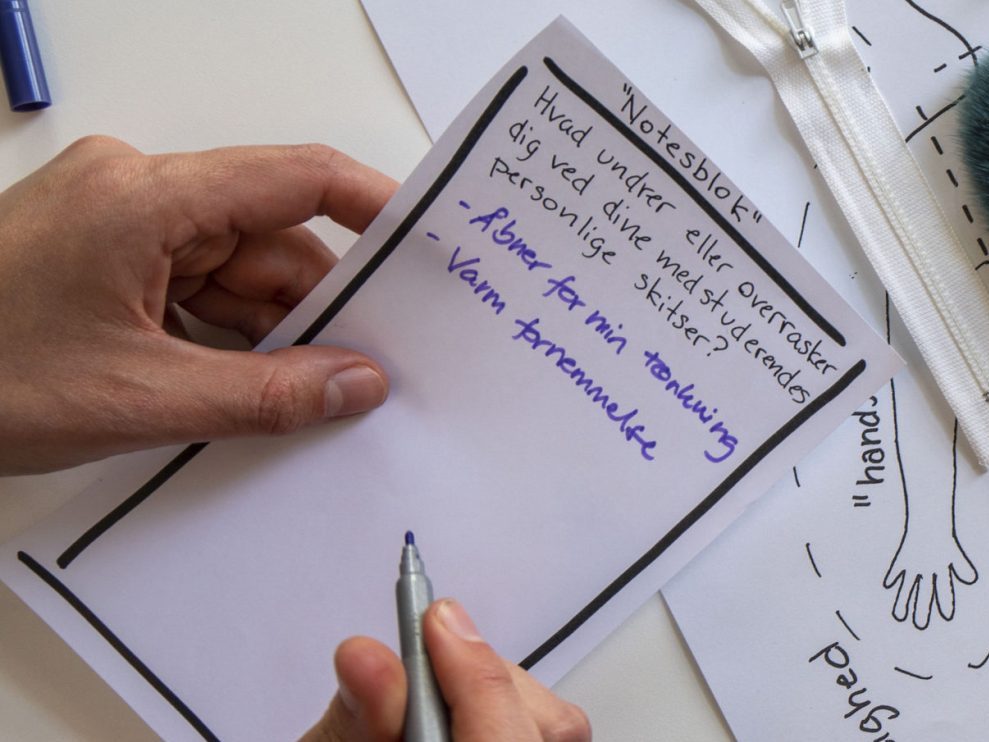 "Notesblok"
Hvad undrer eller overrasker
dig ved dine medstuderendes
personlige skitser?
- Åbner for min tænkning
- Varm fornemmelse
"hands
ighed